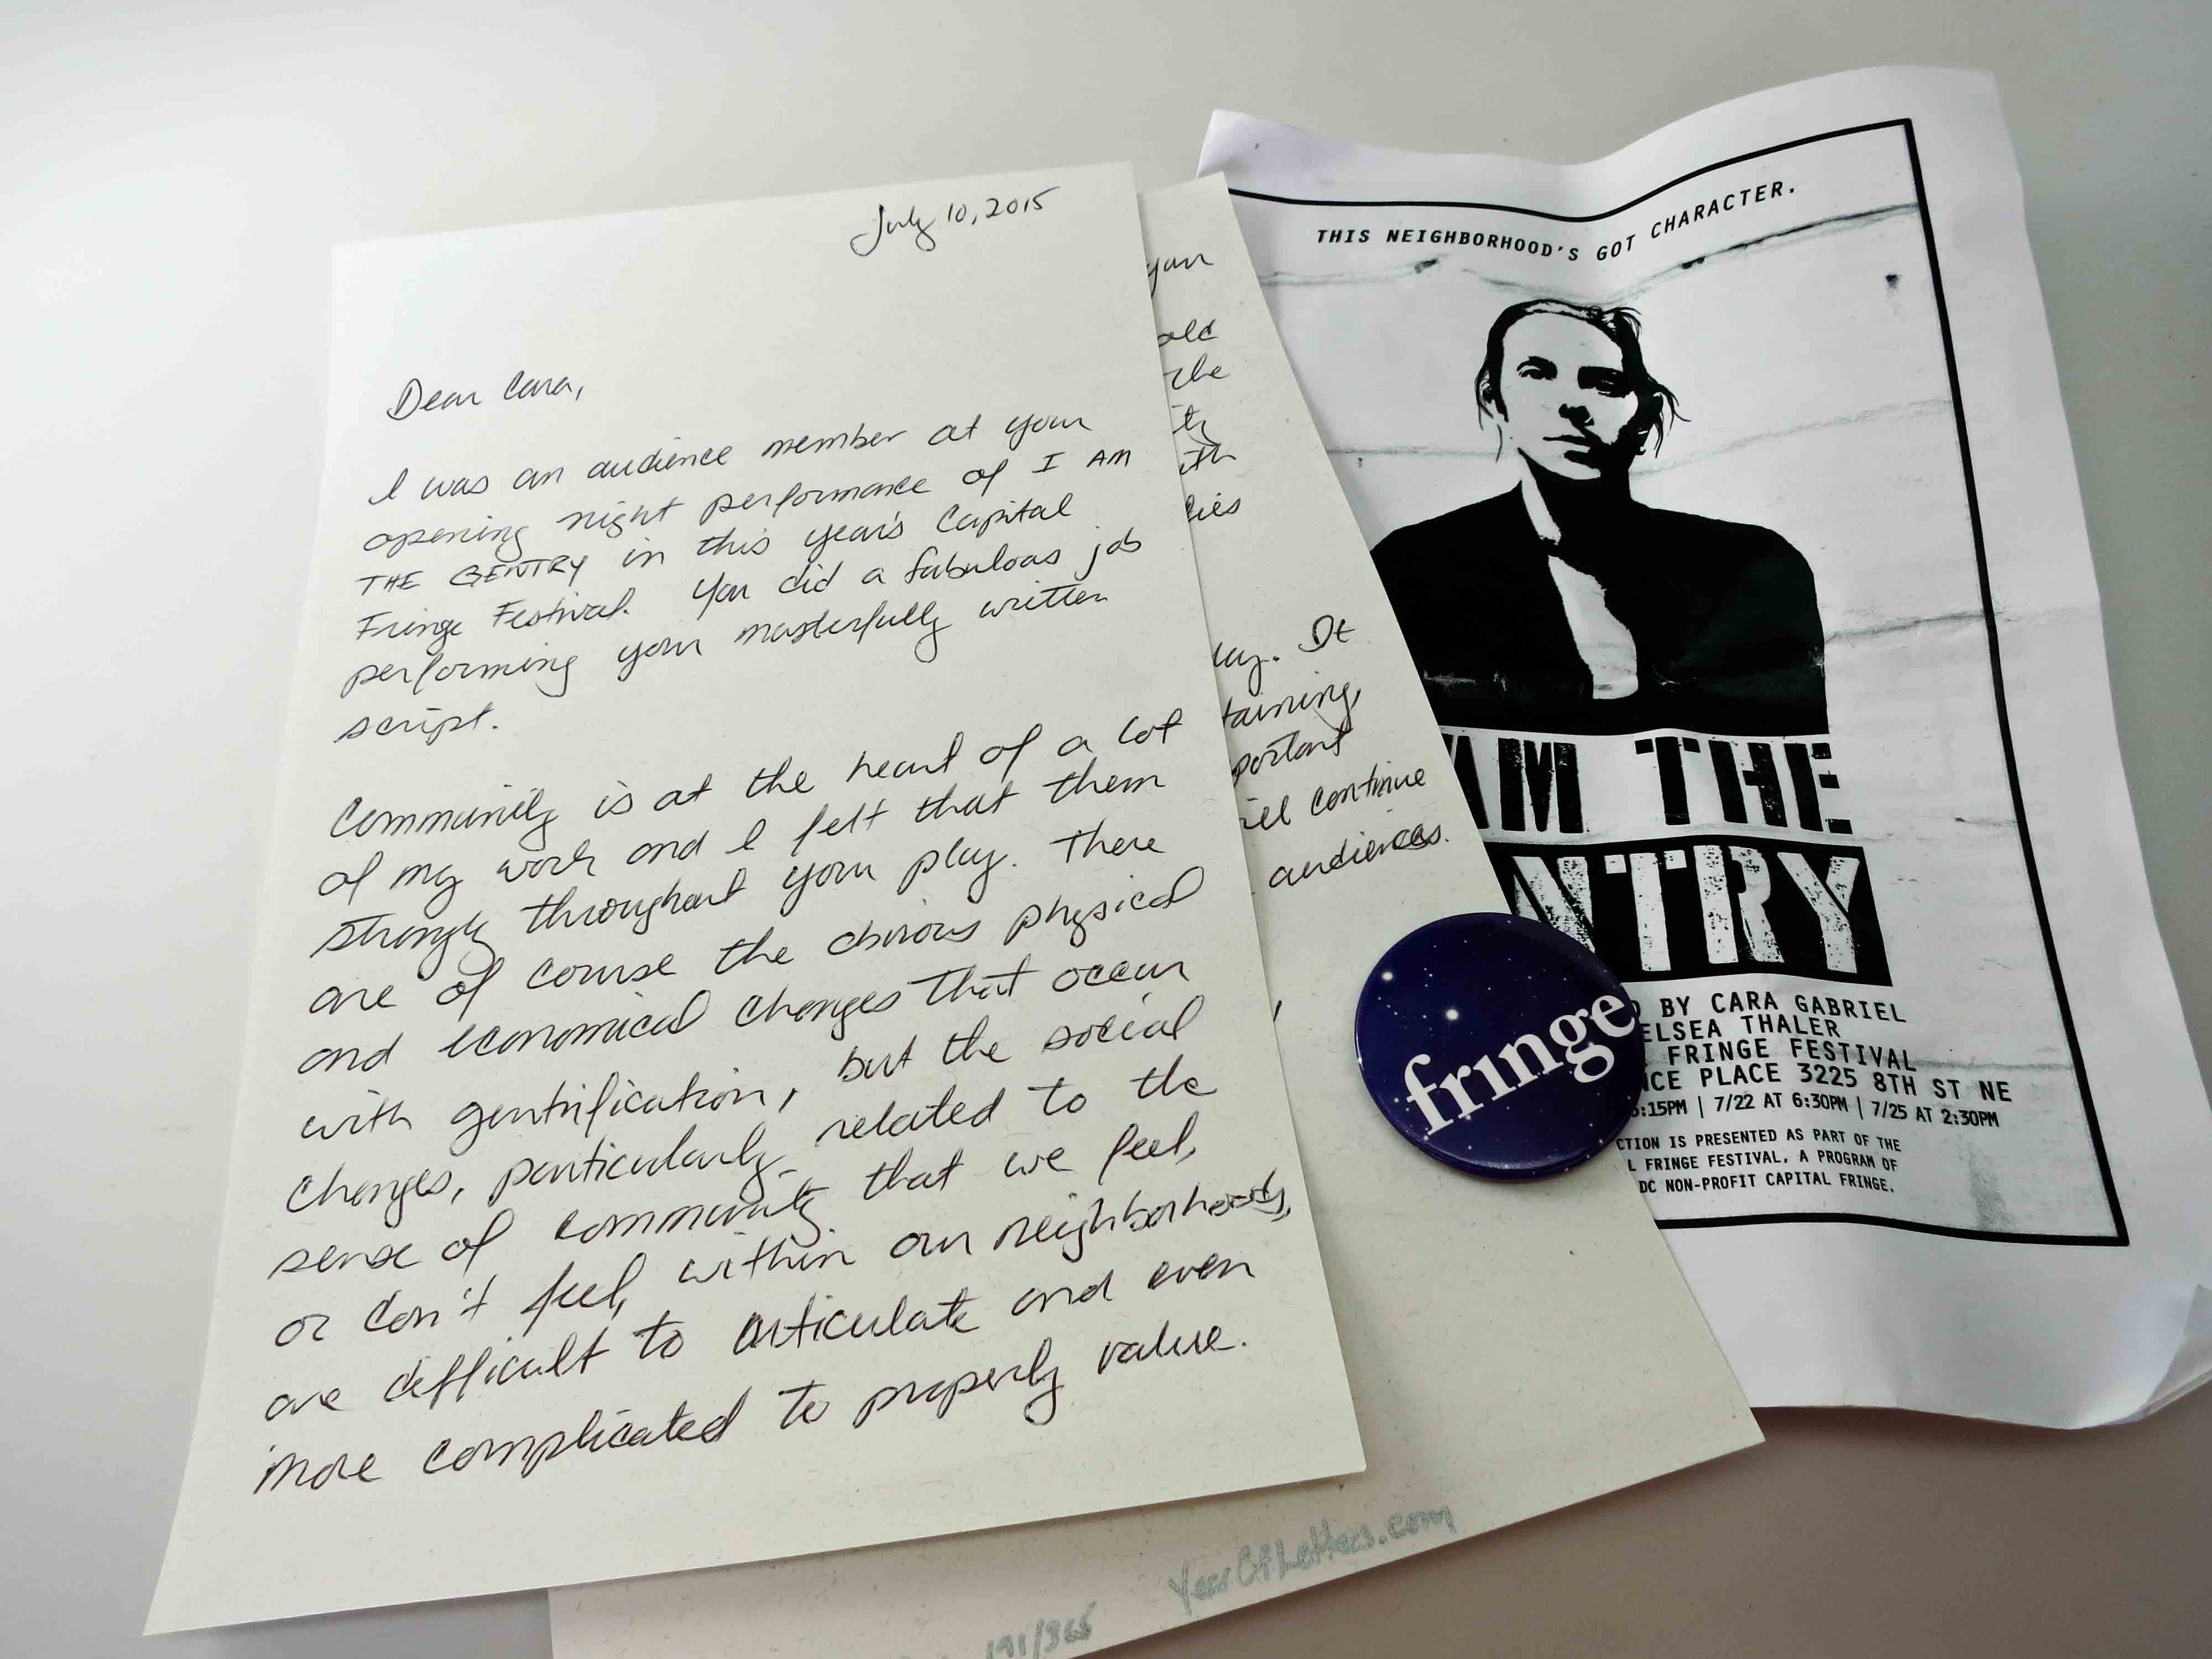 July 10, 2015
Dear Cara,
I was an audience member at your
opening night performance of I AM
THE GENTRY in this year's Capital
Fringe Festival. You did a fabulous job
performing your masterfully written
script.
Community is at the heart of a lot
of my work and I felt that them
strongly throughout your play. There
are of course the obvious physical
and economical changes that occur
with gentrification, but the social
changes, particularly related to the
sense of community that we feel,
or don't feel, within our neighborhoods,
are difficult to articulate and even
more complicated to properly value.
continue
audiences.
191/365
YearOfLetters.com
THIS NEIGHBORHOOD'S GOT CHARACTER.
AM THE
NTRY
BY CARA GABRIEL
ELSEA THALER
FRINGE FESTIVAL
NCE PLACE 3225 8TH ST NE
6:15PM | 7/22 AT 6:30PM | 7/25 AT 2:30PM
CTION IS PRESENTED AS PART OF THE
L FRINGE FESTIVAL, A PROGRAM OF
DC NON-PROFIT CAPITAL FRINGE.
fringe